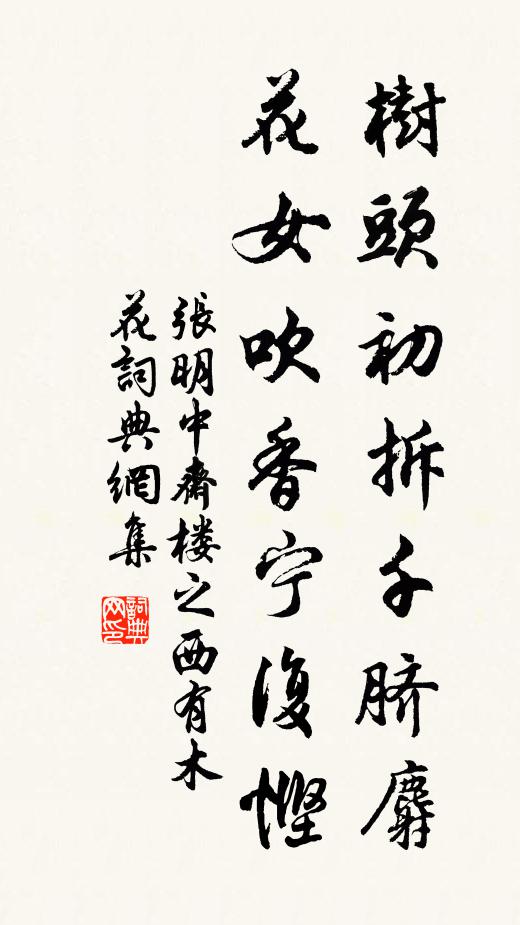 樹頭初拆千脐麝
花女吹香宁復慳
張明中齋楼之西有木
花詞典網集
詞典网印